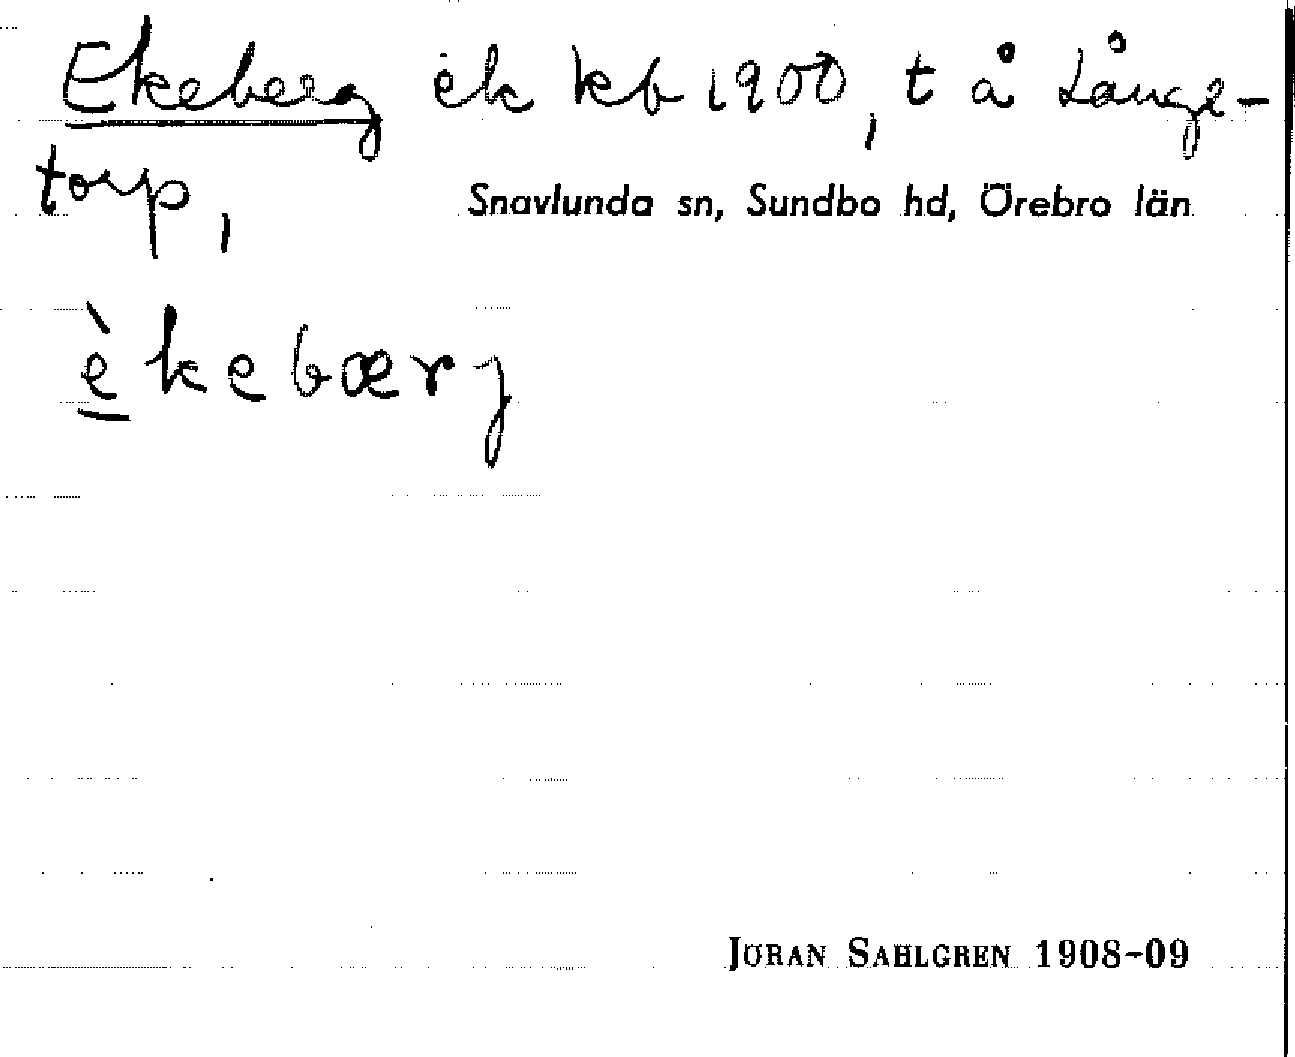 Ekeberg ek kb 1900, t å Långe-
torp,
Snavlunda sn, Sundbo hd, Örebro län
èkebærj
JÖRAN SAHLGREN 1908-09